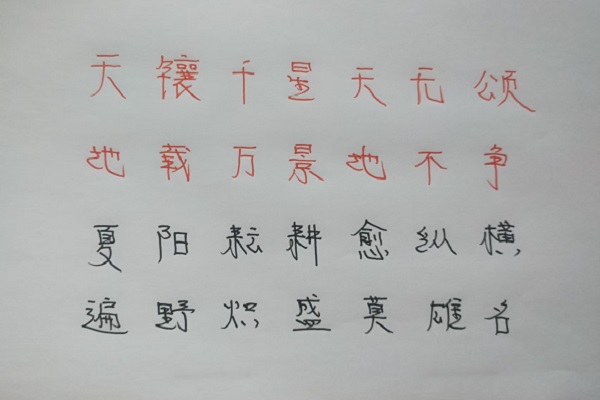 天镶千星天无颂
地载万景地不争
夏阳耘耕愈纵横
遍野炽盛莫雄名